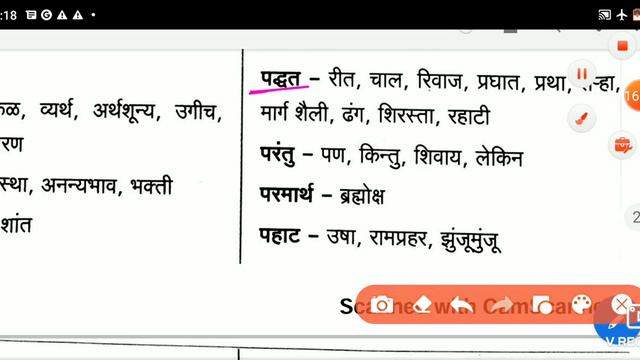 :18
व्यर्थ, अर्थशून्य, उगीच,
अनन्यभाव, भक्ती
शांत
पद्धत – रीत, चाल, रिवाज, प्रघात, प्रथा,
मार्ग शैली, ढंग, शिरस्ता, रहाटी
परंतु – पण, किन्तु, शिवाय, लेकिन
परमार्थ – ब्रह्मोक्ष
पहाट – उषा, रामप्रहर, झुंजूमुंजू
with
16
2